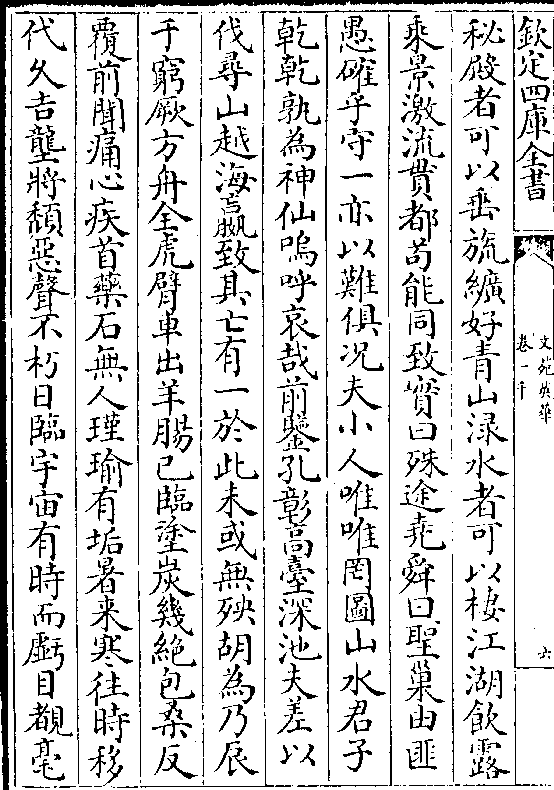 欽定四庫全書
文苑英華
卷一千
六
秘殿者可以垂旒纊好青山渌水者可以棲江湖飲露
乘景激流貫都茍能同致寳曰殊途堯舜曰聖巢由匪
愚確乎守一亦以難俱况夫小人唯唯罔圖山水君子
乾乾孰為神仙嗚呼哀哉前鑒孔彰髙臺深池夫差以
伐尋山越海嬴致其亡有一於此未或無殃胡為乃辰
于窮厥方舟全虎臂車出羊腸已臨塗炭幾絶包桑反
覆前聞痛心疾首藥石無人瑾瑜有垢暑来寒往時移
代久吉蠥將頽惡聲不朽日臨宇宙有時而虧目覩毫